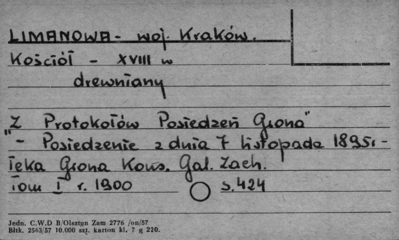 LIMANOWA - woj. Kraków.
Kościół - XVIII w
drewniany
"Z Protokołów Posiedzeń Grona"
- Posiedzenie z dnia 7 listopada 1895r -
Teka Grona Kons. Gal. Zach.
Tom I r. 1900 s. 424
Jedn. C.W.D B/Olsztyn Zam 2776 /on/57
Bltk. 2563/57 10.000 szt. karton kl. 7 g 220.